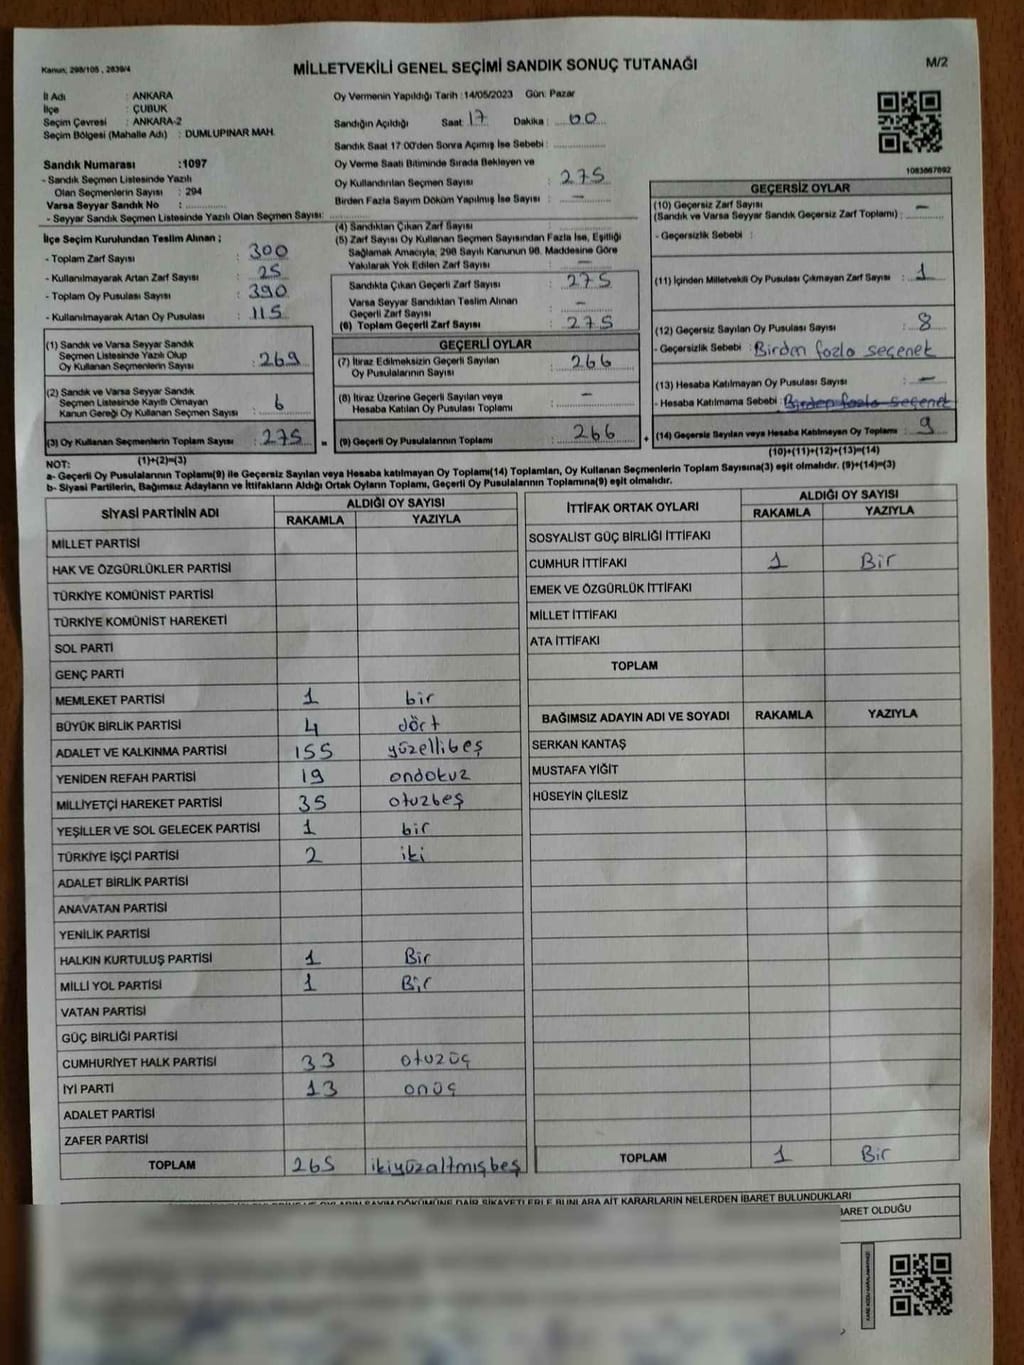 Kanun: 298/105 , 2839/4
MİLLETVEKİLİ GENEL SEÇİMİ SANDIK SONUÇ TUTANAĞI
M/2
İl Adı : ANKARA
İlçe : ÇUBUK
Seçim Çevresi : ANKARA-2
Seçim Bölgesi (Mahalle Adı) : DUMLUPINAR MAH.
Sandık Numarası :1097
- Sandık Seçmen Listesinde Yazılı
Olan Seçmenlerin Sayısı : 294
Varsa Seyyar Sandık No :
- Seyyar Sandık Seçmen Listesinde Yazılı Olan Seçmen Sayısı:
Oy Vermenin Yapıldığı Tarih :14/05/2023 Gün: Pazar
Sandığın Açıldığı Saat 17 Dakika : 00
Sandık Saat 17:00'den Sonra Açımış İse Sebebi :
Oy Verme Saati Bitiminde Sırada Bekleyen ve
Oy Kullandırılan Seçmen Sayısı : 275
Birden Fazla Sayım Döküm Yapılmış İse Sayısı : –
1083667692
İlçe Seçim Kurulundan Teslim Alınan ;
- Toplam Zarf Sayısı : 300
- Kullanılmayarak Artan Zarf Sayısı : 25
- Toplam Oy Pusulası Sayısı : 390
- Kullanılmayarak Artan Oy Pusulası : 115
(1) Sandık ve Varsa Seyyar Sandık
Seçmen Listesinde Yazılı Olup
Oy Kullanan Seçmenlerin Sayısı : 269
(2) Sandık ve Varsa Seyyar Sandık
Seçmen Listesinde Kayıtlı Olmayan
Kanun Gereği Oy Kullanan Seçmen Sayısı : 6
(3) Oy Kullanan Seçmenlerin Toplam Sayısı : 275 =
(4) Sandıktan Çıkan Zarf Sayısı :
(5) Zarf Sayısı Oy Kullanan Seçmen Sayısından Fazla İse, Eşitliği
Sağlamak Amacıyla, 298 Sayılı Kanunun 98. Maddesine Göre
Yakılarak Yok Edilen Zarf Sayısı : –
Sandıkta Çıkan Geçerli Zarf Sayısı : 275
Varsa Seyyar Sandıktan Teslim Alınan
Geçerli Zarf Sayısı : –
(6) Toplam Geçerli Zarf Sayısı : 275
GEÇERLİ OYLAR
(7) İtiraz Edilmeksizin Geçerli Sayılan
Oy Pusulalarının Sayısı : 266
(8) İtiraz Üzerine Geçerli Sayılan veya
Hesaba Katılan Oy Pusulası Toplamı : –
(9) Geçerli Oy Pusulalarının Toplamı : 266 +
GEÇERSİZ OYLAR
(10) Geçersiz Zarf Sayısı
(Sandık ve Varsa Seyyar Sandık Geçersiz Zarf Toplamı) : –
- Geçersizlik Sebebi :
(11) İçinden Milletvekili Oy Pusulası Çıkmayan Zarf Sayısı : 1
(12) Geçersiz Sayılan Oy Pusulası Sayısı : 8
- Geçersizlik Sebebi : Birden fazla seçenek
(13) Hesaba Katılmayan Oy Pusulası Sayısı : –
- Hesaba Katılmama Sebebi : Birden fazla seçenek
(14) Geçersiz Sayılan veya Hesaba Katılmayan Oy Toplamı : 9
NOT: (1)+(2)=(3)
(10)+(11)+(12)+(13)=(14)
a- Geçerli Oy Pusulalarının Toplamı(9) ile Geçersiz Sayılan veya Hesaba katılmayan Oy Toplamı(14) Toplamları, Oy Kullanan Seçmenlerin Toplam Sayısına(3) eşit olmalıdır. (9)+(14)=(3)
b- Siyasi Partilerin, Bağımsız Adayların ve İttifakların Aldığı Ortak Oyların Toplamı, Geçerli Oy Pusulalarının Toplamına(9) eşit olmalıdır.
SİYASİ PARTİNİN ADI ALDIĞI OY SAYISI
RAKAMLA YAZIYLA
MİLLET PARTİSİ
HAK VE ÖZGÜRLÜKLER PARTİSİ
TÜRKİYE KOMÜNİST PARTİSİ
TÜRKİYE KOMÜNİST HAREKETİ
SOL PARTİ
GENÇ PARTİ
MEMLEKET PARTİSİ 1 bir
BÜYÜK BİRLİK PARTİSİ 4 dört
ADALET VE KALKINMA PARTİSİ 155 yüzellibeş
YENİDEN REFAH PARTİSİ 19 ondokuz
MİLLİYETÇİ HAREKET PARTİSİ 35 otuzbeş
YEŞİLLER VE SOL GELECEK PARTİSİ 1 bir
TÜRKİYE İŞÇİ PARTİSİ 2 iki
ADALET BİRLİK PARTİSİ
ANAVATAN PARTİSİ
YENİLİK PARTİSİ
HALKIN KURTULUŞ PARTİSİ 1 Bir
MİLLİ YOL PARTİSİ 1 Bir
VATAN PARTİSİ
GÜÇ BİRLİĞİ PARTİSİ
CUMHURİYET HALK PARTİSİ 33 otuzüç
İYİ PARTİ 13 onüç
ADALET PARTİSİ
ZAFER PARTİSİ
TOPLAM 265 ikiyüzaltmışbeş
İTTİFAK ORTAK OYLARI ALDIĞI OY SAYISI
RAKAMLA YAZIYLA
SOSYALİST GÜÇ BİRLİĞİ İTTİFAKI
CUMHUR İTTİFAKI 1 Bir
EMEK VE ÖZGÜRLÜK İTTİFAKI
MİLLET İTTİFAKI
ATA İTTİFAKI
TOPLAM
BAĞIMSIZ ADAYIN ADI VE SOYADI RAKAMLA YAZIYLA
SERKAN KANTAŞ
MUSTAFA YİĞİT
HÜSEYİN ÇİLESİZ
TOPLAM 1 Bir
OYLARIN SAYIM DÖKÜMÜNE DAİR ŞİKAYETLERLE BUNLARA AİT KARARLARIN NELERDEN İBARET BULUNDUKLARI
İBARET OLDUĞU